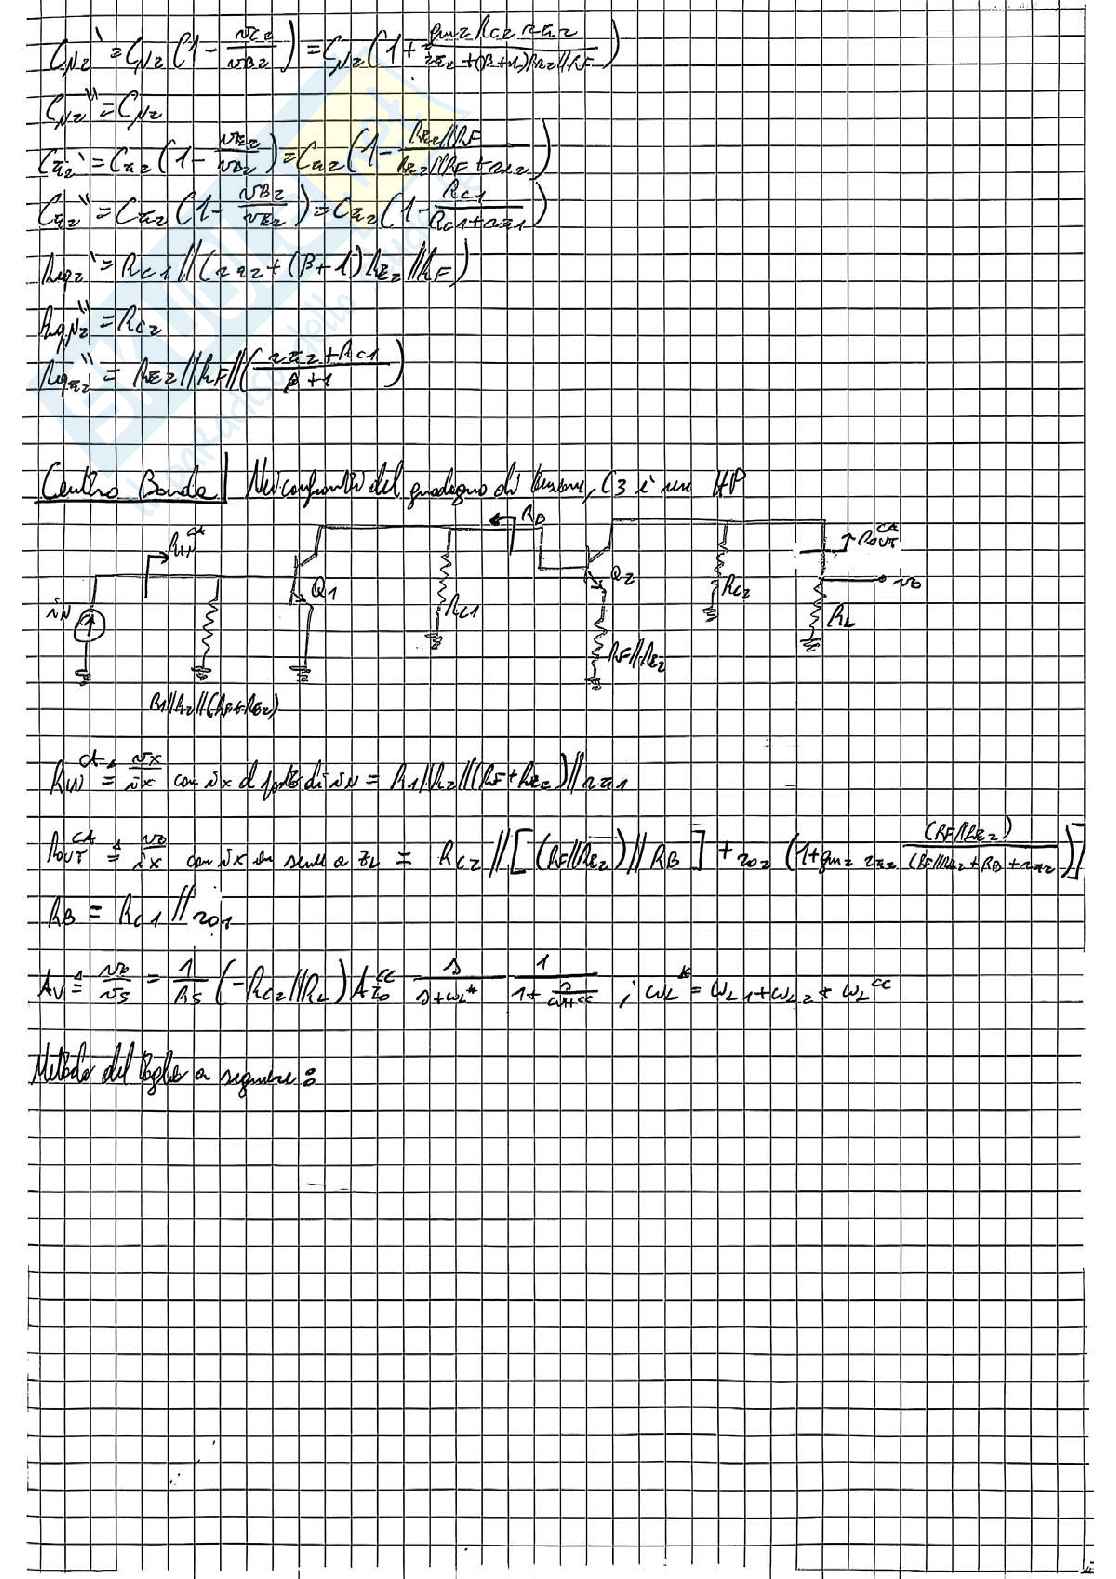 Cμ2' = Cμ2 (1 - vC2/vB2) = Cμ2 (1 + gm2 RC2 rπ2 / rπ2 + (β+1)RE2//RF)
Cμ2'' = Cμ2
Cπ2' = Cπ2 (1 - vE2/vB2) = Cπ2 (1 - RE2//RF / RE2//RF + rπ2)
Cπ2'' = Cπ2 (1 - vB2/vE2) = Cπ2 (1 - RC1/RC1+rπ1)
Req2' = RC1 // (rπ2 + (β+1) RE2 // RF)
Reqμ2'' = RC2
Reqπ2'' = RE2 // RF // (rπ2 + RC1 / β+1)
Centro Banda | Nei confronti del guadagno di tensione, C3 è un HP
RB
RIN CA
ROUT CA
iN
Q1
RC1
Q2
RC2
vo
RL
RF//RE2
R1//R2//(RF+RE2)
RIN CA ≜ vx/ix con ix al posto di iN = R1//R2//(RF+RE2)//rπ1
ROUT CA ≜ vo/ix con ix in serie a ZL = RC2 // [(RF//RE2) // RB] + ro2 (1+gm2 rπ2 (RF//RE2) / (RF//RE2 + RB + rπ2))]
RB = RC1 // ro1
AV ≜ vo/vS = 1/RS (-RC2//RL) AIo CC s/s+ωL* 1/1+s/ωH CC ; ωL* = ωL1 + ωL2 + ωL CC
Metodo del taglio a seguire: